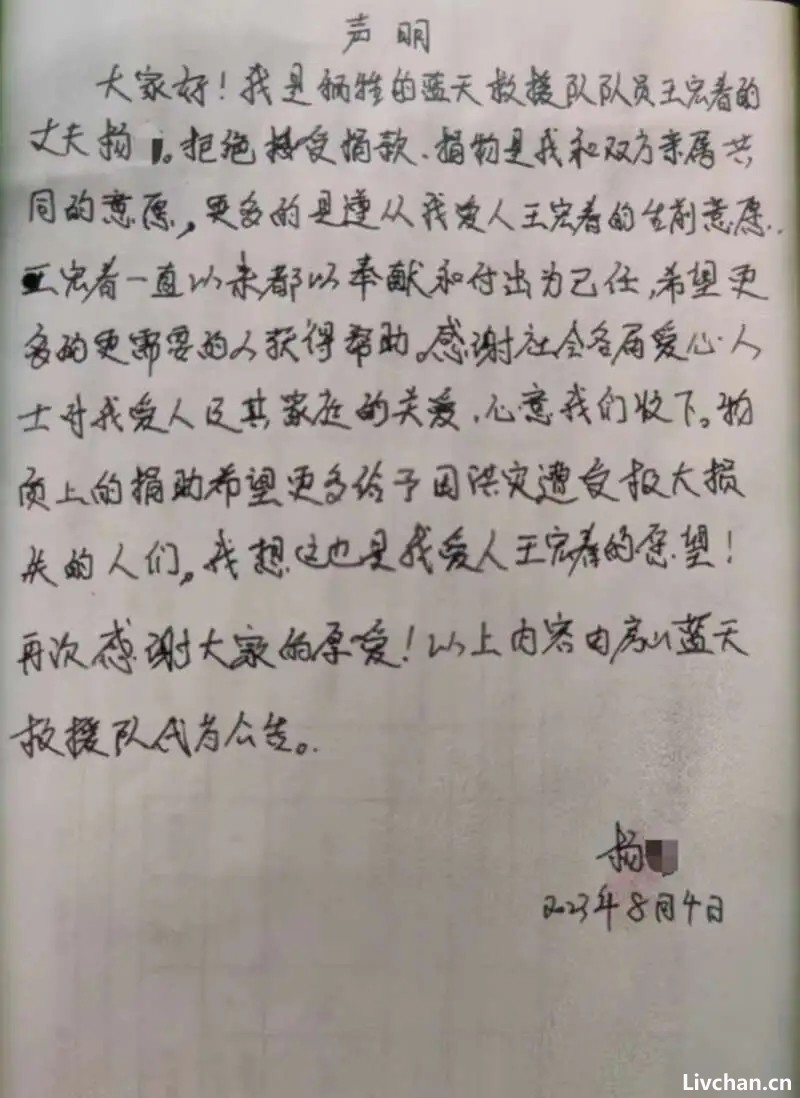 声明
大家好！我是牺牲的蓝天救援队队员王宏春的
丈夫杨。拒绝接受捐款、捐物是我和双方亲属共
同的意愿，更多的是遵从我爱人王宏春的生前意愿.
王宏春一直以来都以奉献和付出为己任，希望更
多的更需要的人获得帮助。感谢社会各届爱心人
士对我爱人及其家庭的关爱，心意我们收下。物
质上的捐助希望更多给予因洪灾遭受极大损
失的人们。我想这也是我爱人王宏春的愿望！
再次感谢大家的厚爱！以上内容由房山蓝天
救援队代为公告。
杨
2023年8月4日
Livchan.cn